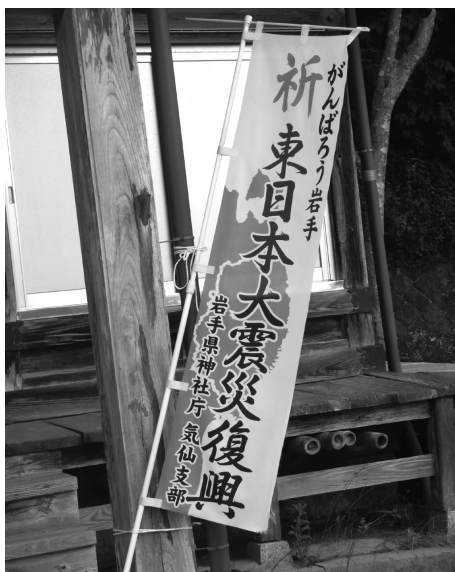 がんばろう岩手
祈 東日本大震災復興
岩手県神社庁 気仙支部